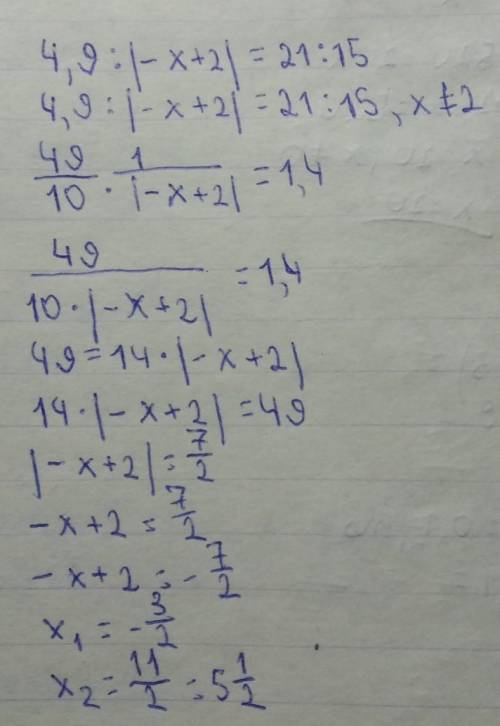 4,9 : |-x+2| = 21 : 15
4,9 : |-x+2| = 21 : 15, x ≠ 2
49/10 · 1/|-x+2| = 1,4
49/(10·|-x+2|) = 1,4
49 = 14·|-x+2|
14·|-x+2| = 49
|-x+2| = 7/2
-x+2 = 7/2
-x+2 = -7/2
x₁ = -3/2
x₂ = 11/2 = 5 1/2